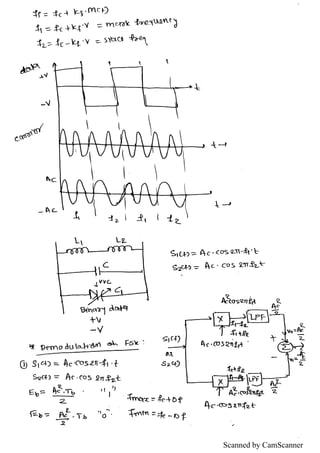 fi = fc + kf.m(t)
f1 = fc + kf.V = mark frequency
f2 = fc - kf.V = space freq
data
+V
t
-V
carrier
t
AC
t
- AC
f1 f2 f1 f2
L1 L2
C
+VCC
C1
Binary data
+V
-V
S1(t) = Ac.cos 2π.f1.t
S2(t) = Ac.cos 2πf2t
* Demodulation of FSK:
① S1(t) = Ac cos 2π.f1.t
S2(t) = Ac.cos 2πf2t
Eb = Ac².Tb / 2 "1"
Eb = Ac².Tb / 2 "0"
fmax = fc + Df
fmin = fc - Df
S1(t)
or
S2(t)
X
LPF
Ac.cos2πf1t
+
Σ
-
X
LPF
Ac.cos2πf2t
Scanned by CamScanner